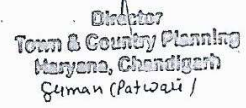 Director
Town & Country Planning
Haryana, Chandigarh
Suman (Patwari)